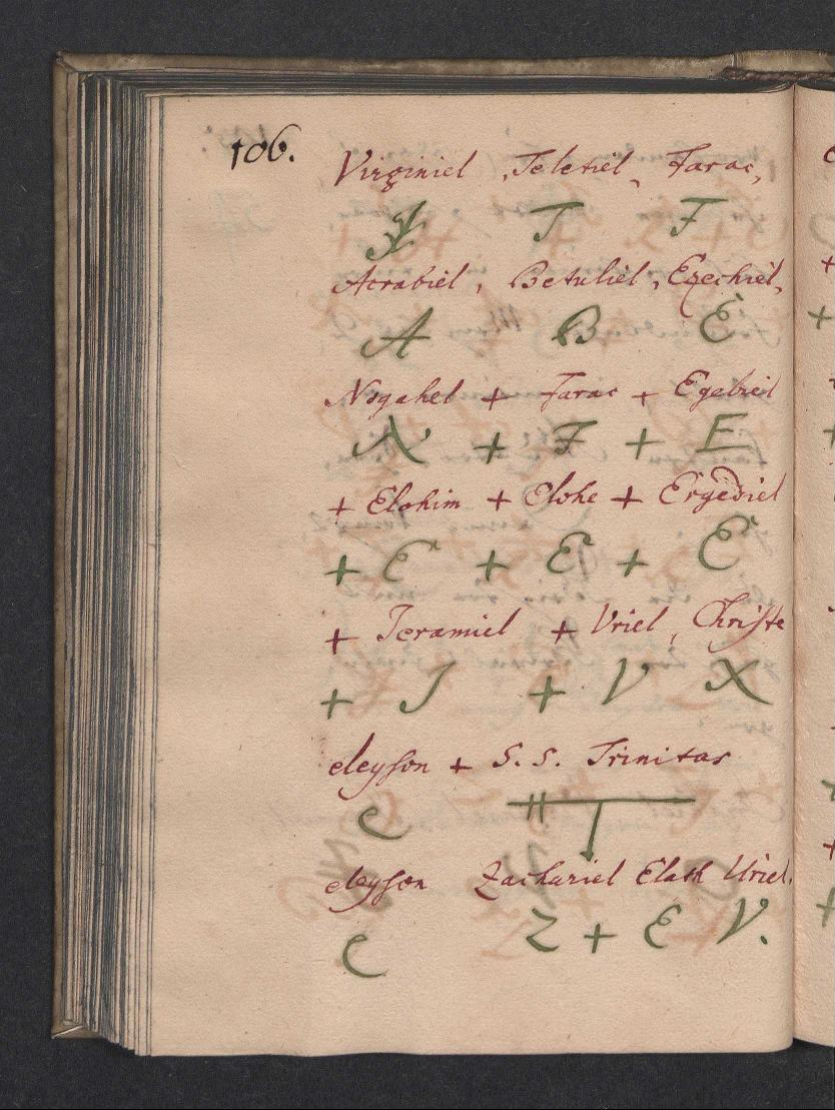 106.
Virginiel, Teletiel, Farac,
V T F
Acrabiel, Betuliel, Ezechiel,
A B E
Nogahel + Farac + Egebiel
N + F + E
+ Elohim + Elohe + Ergediel
+ E + E + E
+ Jeramiel + Vriel, Christe
+ J + V X
eleyson + S. S. Trinitas
e T
eleyson Zachariel Elath Uriel.
e Z + E V.